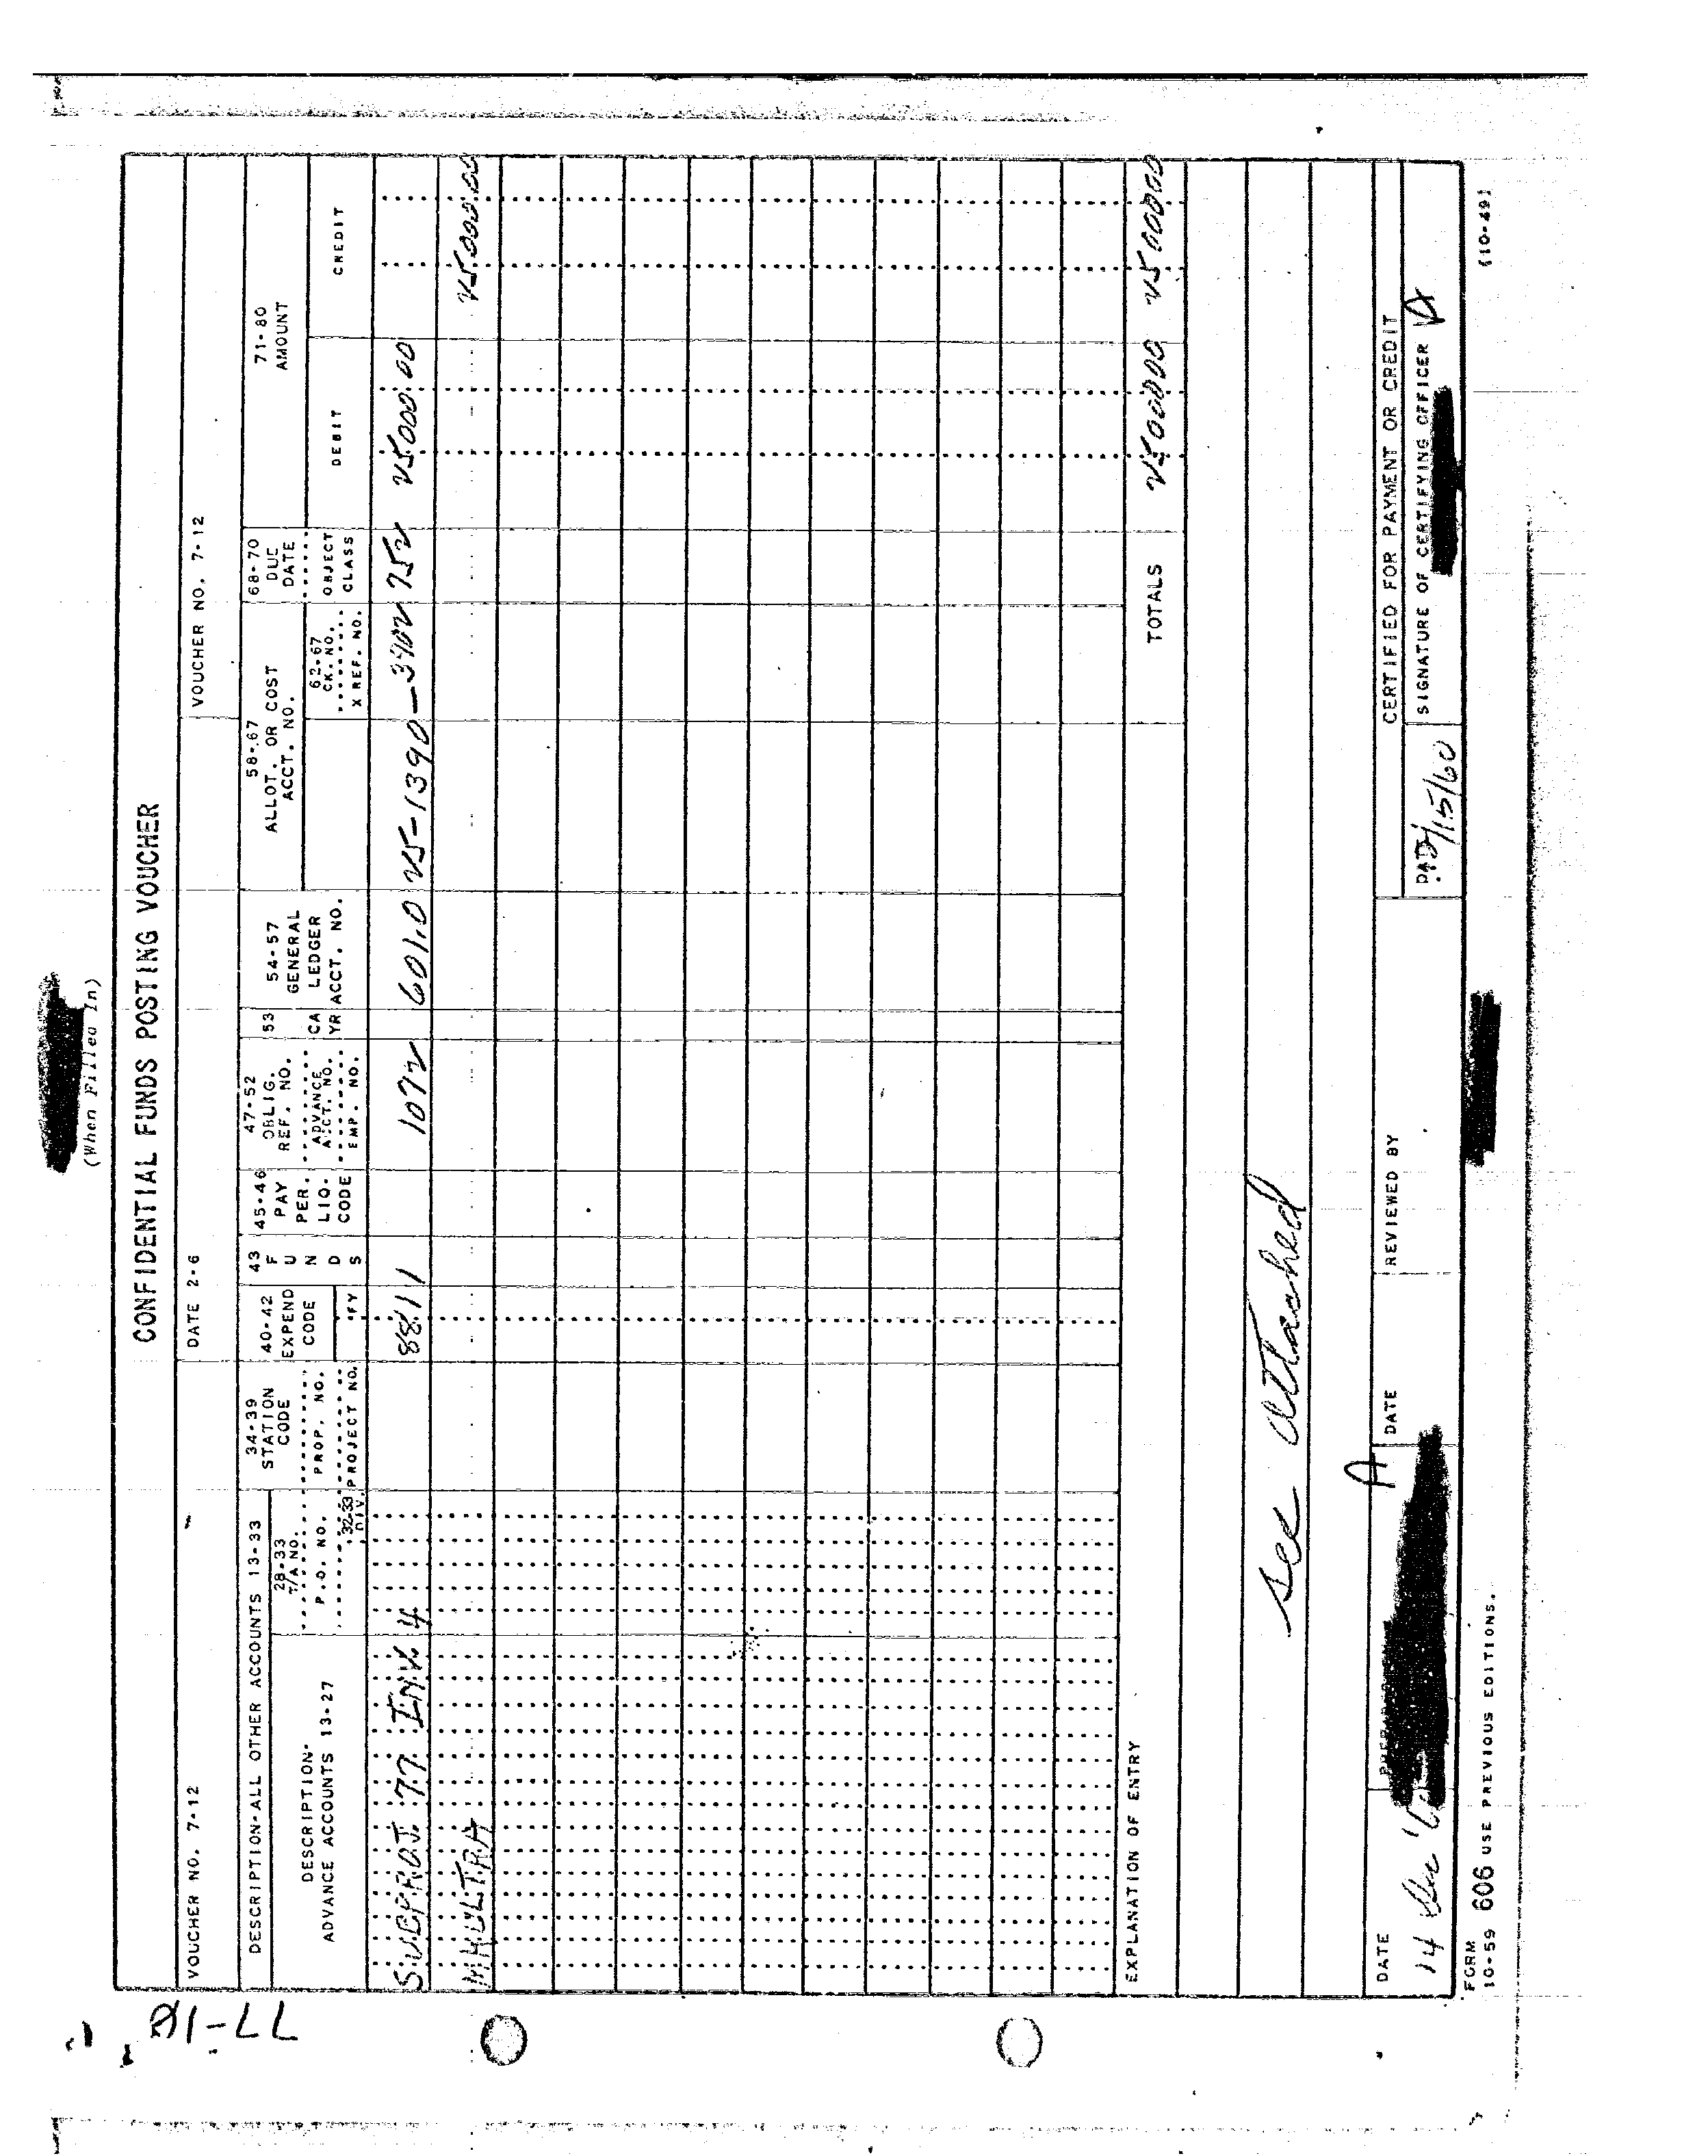 (When Filled In)
CONFIDENTIAL FUNDS POSTING VOUCHER
VOUCHER NO. 7-12 DATE 2-6 VOUCHER NO. 7-12
DESCRIPTION-ALL OTHER ACCOUNTS 13-33
DESCRIPTION-
ADVANCE ACCOUNTS 13-27
28-33
T/A NO.
P.O. NO.
32-33
DIV.
34-39
STATION
CODE
PROP. NO.
PROJECT NO.
40-42
EXPEND
CODE
FY
43
F
U
N
D
S
45-46
PAY
PER.
LIQ.
CODE
47-52
OBLIG.
REF. NO.
ADVANCE
ACCT. NO.
EMP. NO.
53
CA
YR
54-57
GENERAL
LEDGER
ACCT. NO.
58-67
ALLOT. OR COST
ACCT. NO.
62-67
CK. NO.
X REF. NO.
68-70
DUE
DATE
OBJECT
CLASS
71-80
AMOUNT
DEBIT
CREDIT
SUBPROJ. 77 INV. 4 8811 1072 601.0 25-1390-3902 752 25000.00
MKULTRA 25000.00
TOTALS 2500000 2500000
EXPLANATION OF ENTRY
See attached
DATE
14 Dec
A
DATE
REVIEWED BY
CERTIFIED FOR PAYMENT OR CREDIT
/15/60
SIGNATURE OF CERTIFYING OFFICER
FORM
10-59 606 USE PREVIOUS EDITIONS.
(10-49)
77-18